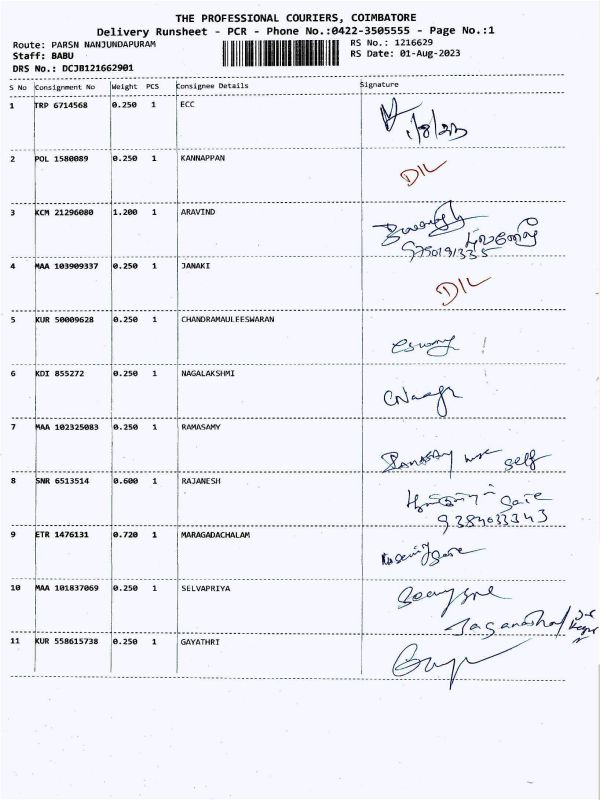 THE PROFESSIONAL COURIERS, COIMBATORE
Delivery Runsheet - PCR - Phone No.:0422-3505555 - Page No.:1
Route: PARSN NANJUNDAPURAM RS No.: 1216629
Staff: BABU RS Date: 01-Aug-2023
DRS No.: DCJB121662901
S No Consignment No Weight PCS Consignee Details Signature
1 TRP 6714568 0.250 1 ECC
1/8/23
2 POL 1580089 0.250 1 KANNAPPAN
D/L
3 KCM 21296080 1.200 1 ARAVIND
9750191335
4 MAA 103909337 0.250 1 JANAKI
D/L
5 KUR 50009628 0.250 1 CHANDRAMAULEESWARAN
6 KDI 855272 0.250 1 NAGALAKSHMI
7 MAA 102325083 0.250 1 RAMASAMY
self
8 SNR 6513514 0.600 1 RAJANESH
9384033343
9 ETR 1476131 0.720 1 MARAGADACHALAM
10 MAA 101837069 0.250 1 SELVAPRIYA
11 KUR 558615738 0.250 1 GAYATHRI